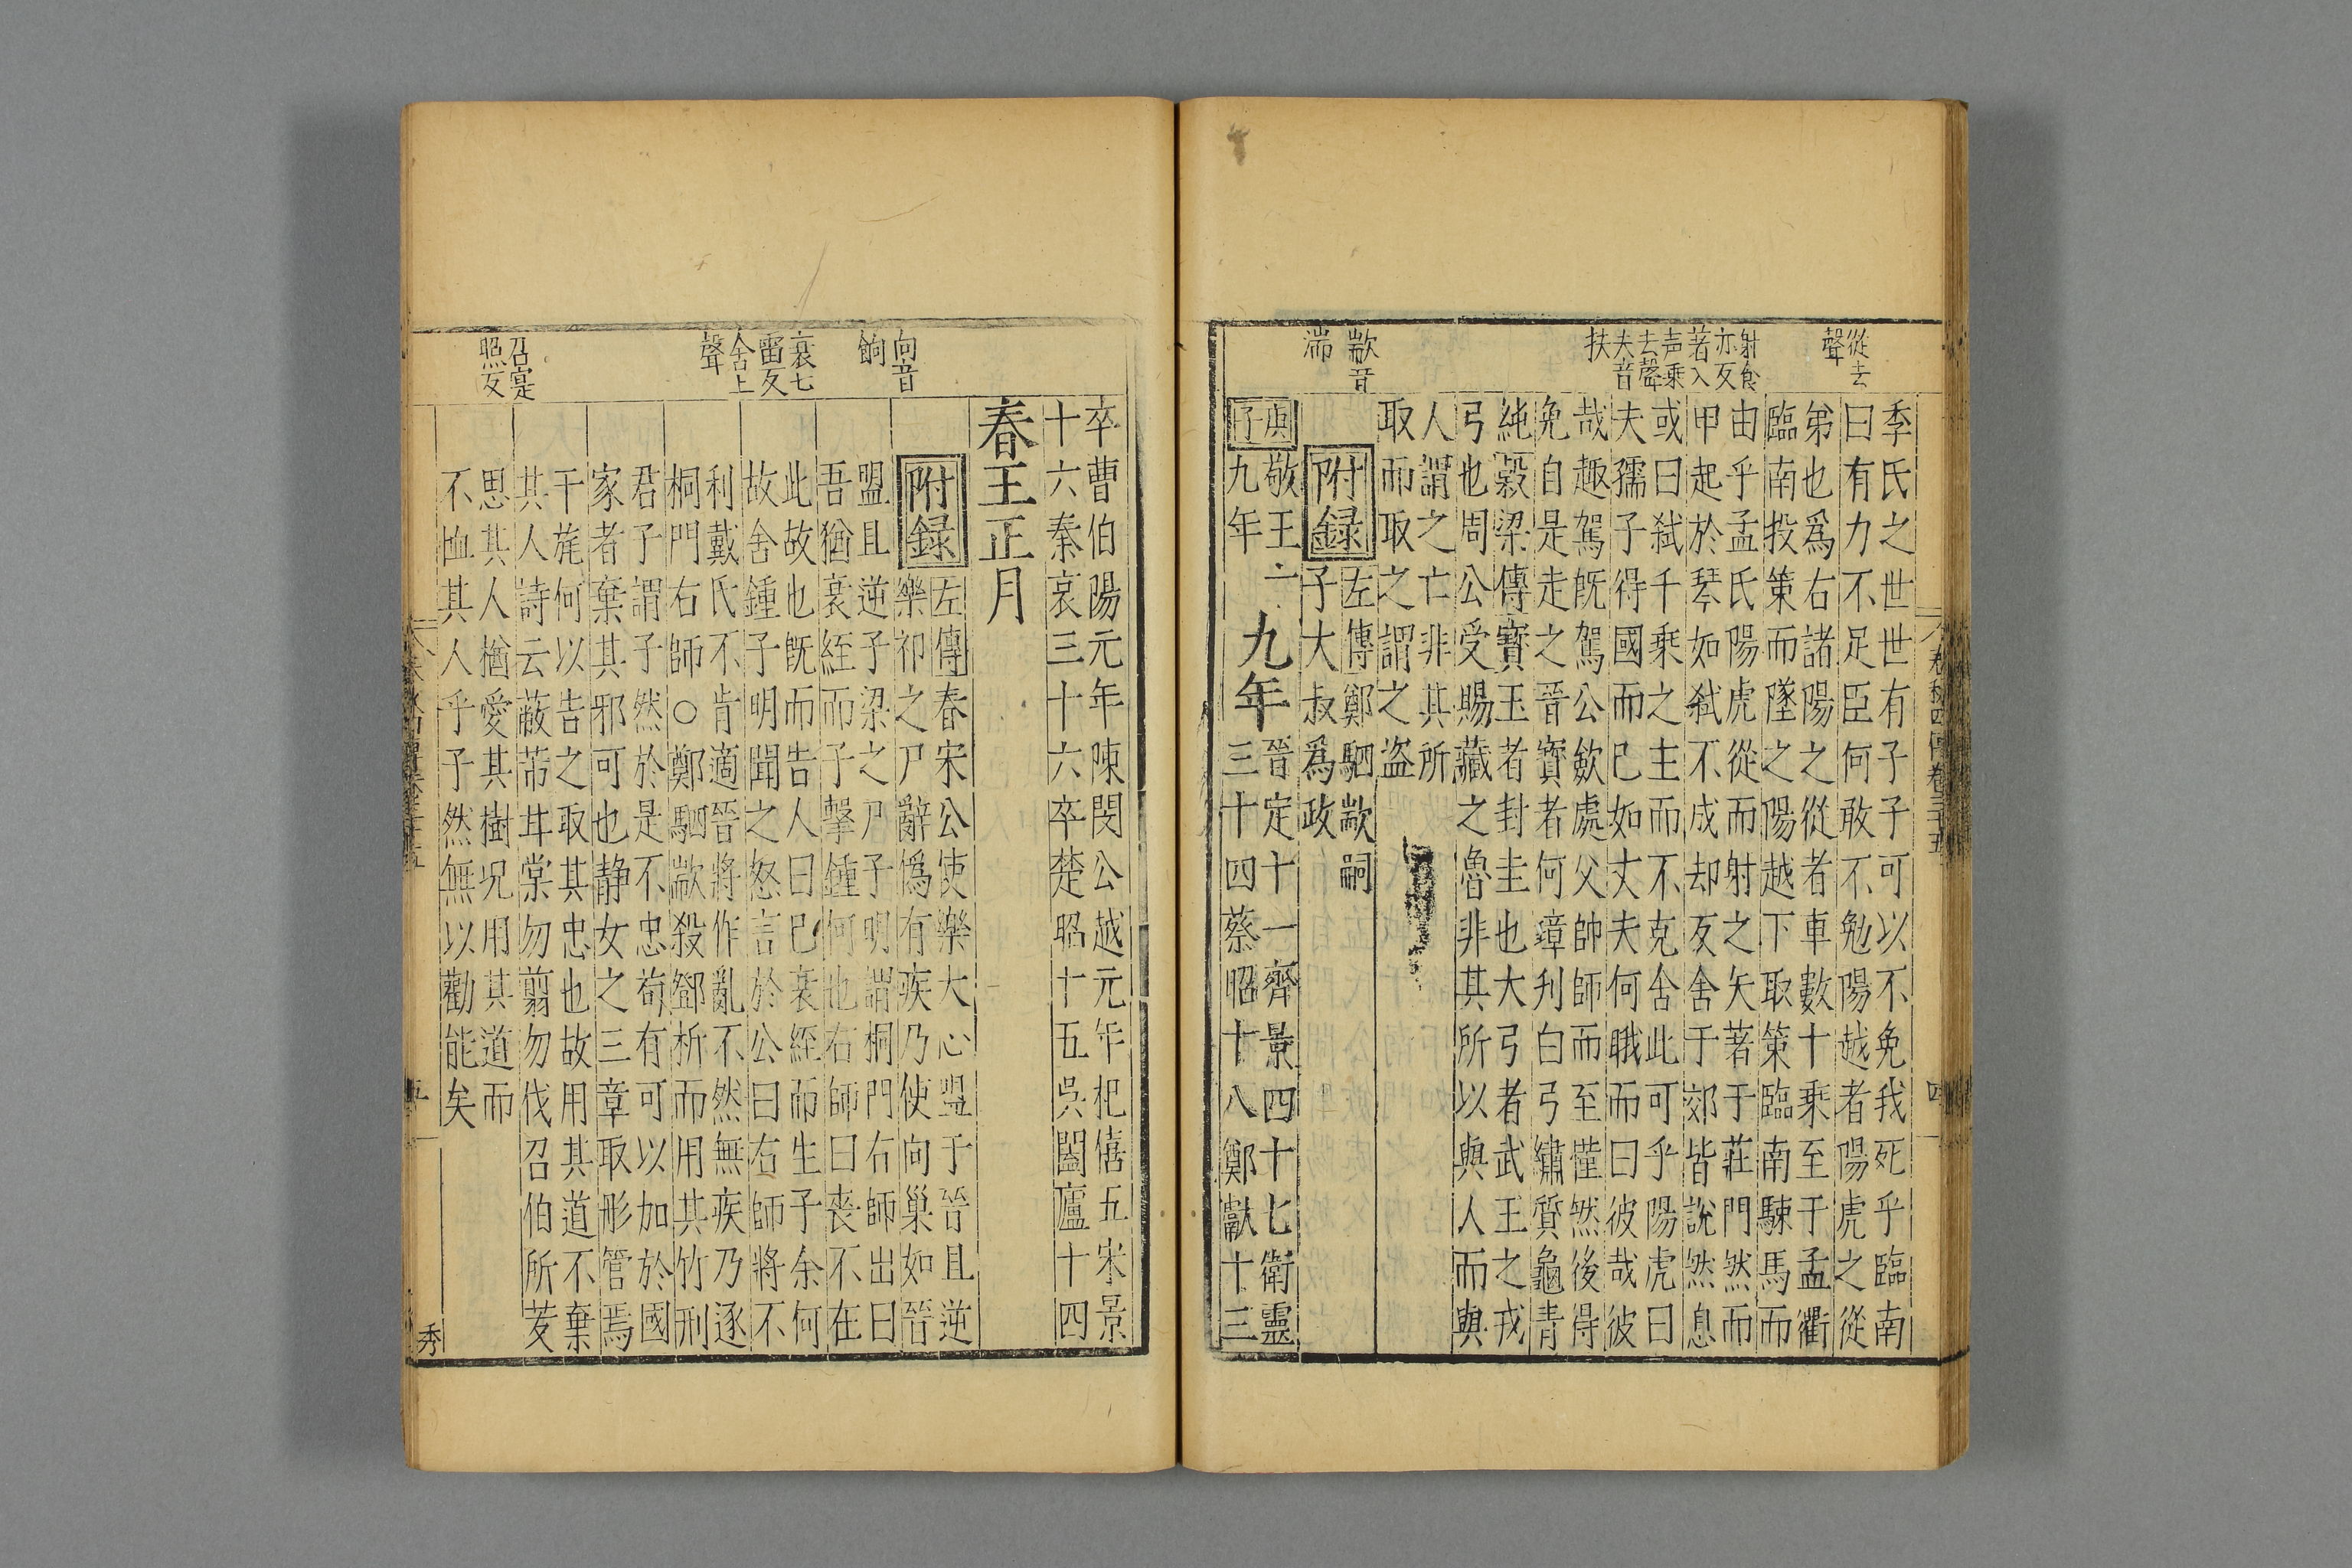 從去
聲
射食
亦反
著入
声乘
去聲
夫音
扶
歂音
湍
季氏之世世有子子可以不免我死乎臨南
曰有力不足臣何敢不勉陽越者陽虎之從
弟也爲右諸陽之從者車數十乗至于孟衢
臨南投策而墜之陽越下取策臨南駷馬而
由乎孟氏陽虎從而射之矢著于莊門然而
甲起於琴如弑不成却反舍于郊皆說然息
或曰弑千乗之主而不克舍此可乎陽虎曰
夫孺子得國而已如丈夫何睋而曰彼哉彼
哉趣駕既駕公斂處父帥師而至慬然後得
免自是走之晉寶者何璋判白弓繡質龜青
純榖梁傳寶玉者封圭也大弓者武王之戎
弓也周公受賜藏之魯非其所以與人而與
人謂之亡非其所
取而取之謂之盗
附録
左傳鄭駟歂嗣
子大叔爲政
庚子
敬王十
九年
九年
晉定十一齊景四十七衛靈
三十四蔡昭十八鄭獻十三
春秋四傳卷三十五
四
向音
餉
衰七
雷反
舍上
聲
召寔
照反
卒曹伯陽元年陳閔公越元年杞僖五宋景
十六秦哀三十六卒楚昭十五吳闔廬十四
春王正月
附録
左傳春宋公使樂大心盟于晉且逆
樂祁之尸辭僞有疾乃使向巢如晉
盟且逆子梁之尸子明謂桐門右師出曰
吾猶衰絰而子擊鍾何也右師曰喪不在
此故也既而告人曰已衰絰而生子余何
故舍鍾子明聞之怒言於公曰右師將不
利戴氏不肯適晉將作亂不然無疾乃逐
桐門右師○鄭駟歂殺鄧析而用其竹刑
君子謂子然於是不忠苟有可以加於國
家者棄其邪可也静女之三章取彤管焉
干旄何以告之取其忠也故用其道不棄
其人詩云蔽芾甘棠勿翦勿伐召伯所茇
思其人猶愛其樹况用其道而
不恤其人乎子然無以勸能矣
春秋四傳卷三十五
五
秀